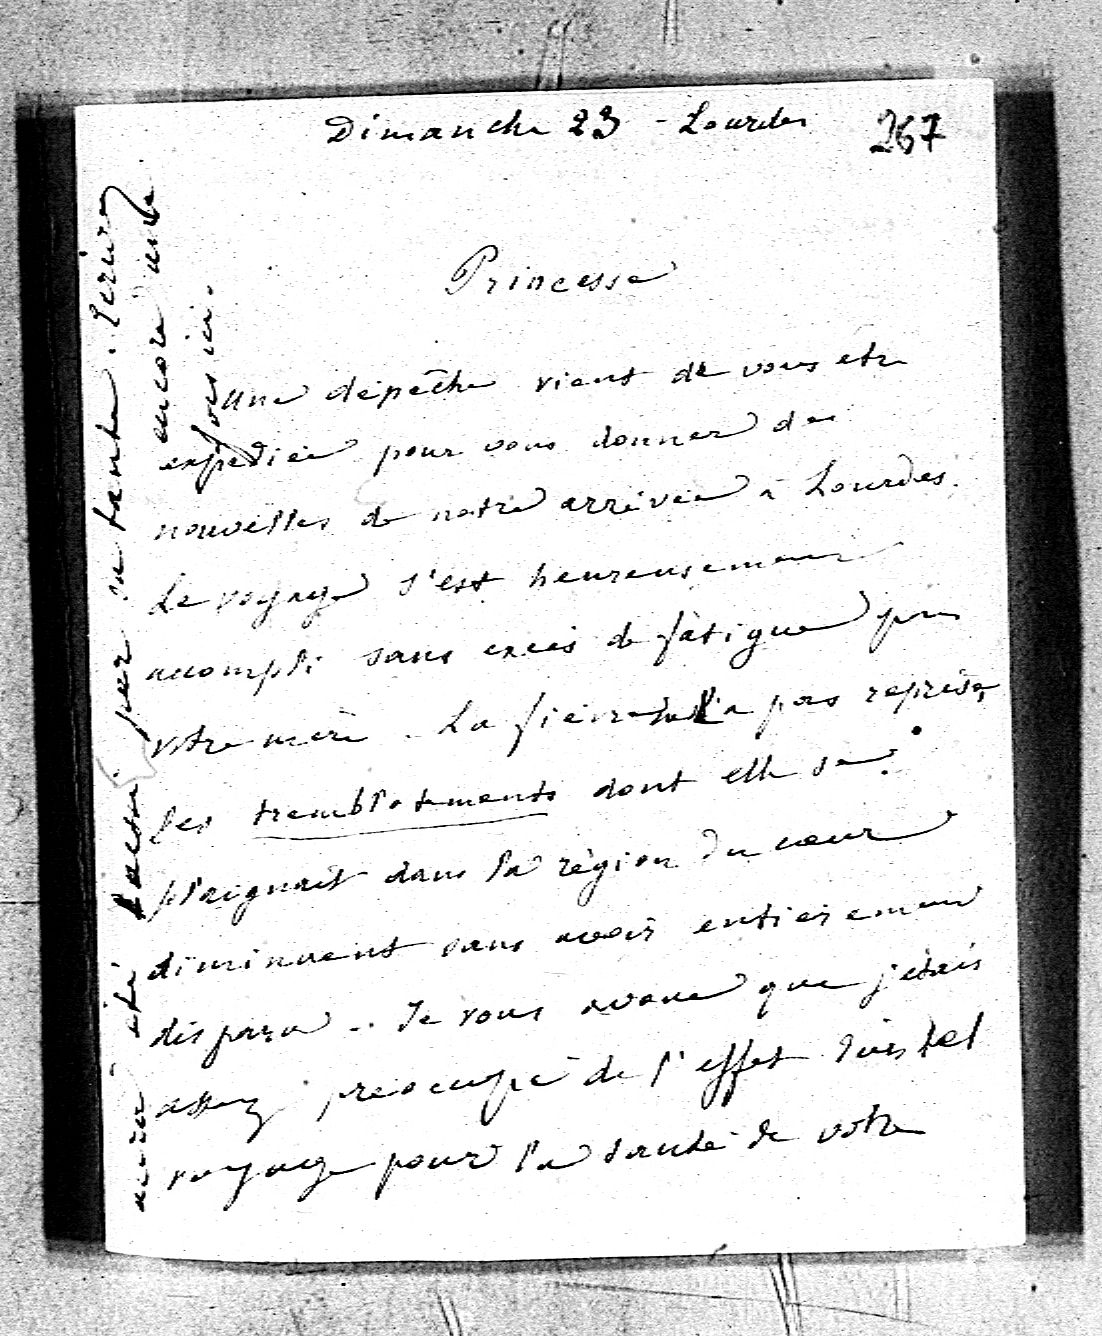 Dimanche 23 - Lourdes
267
Princesse
Une dépêche vient de vous etre
expediée pour vous donner des
nouvelles de notre arrivée à Lourdes.
Le voyage s'est heureusement
accompli sans excès de fatigue pour
votre mère. La fièvre ne l'a pas reprise,
les tremblotements dont elle se
plaignait dans la région du cœur
diminuent sans avoir entierement
disparu.. Je vous avoue que j'étais
assez préoccupé de l'effet d'un tel
voyage pour la santé de votre
mère été par sa tante. Ecrivez
encore une
fois ici.